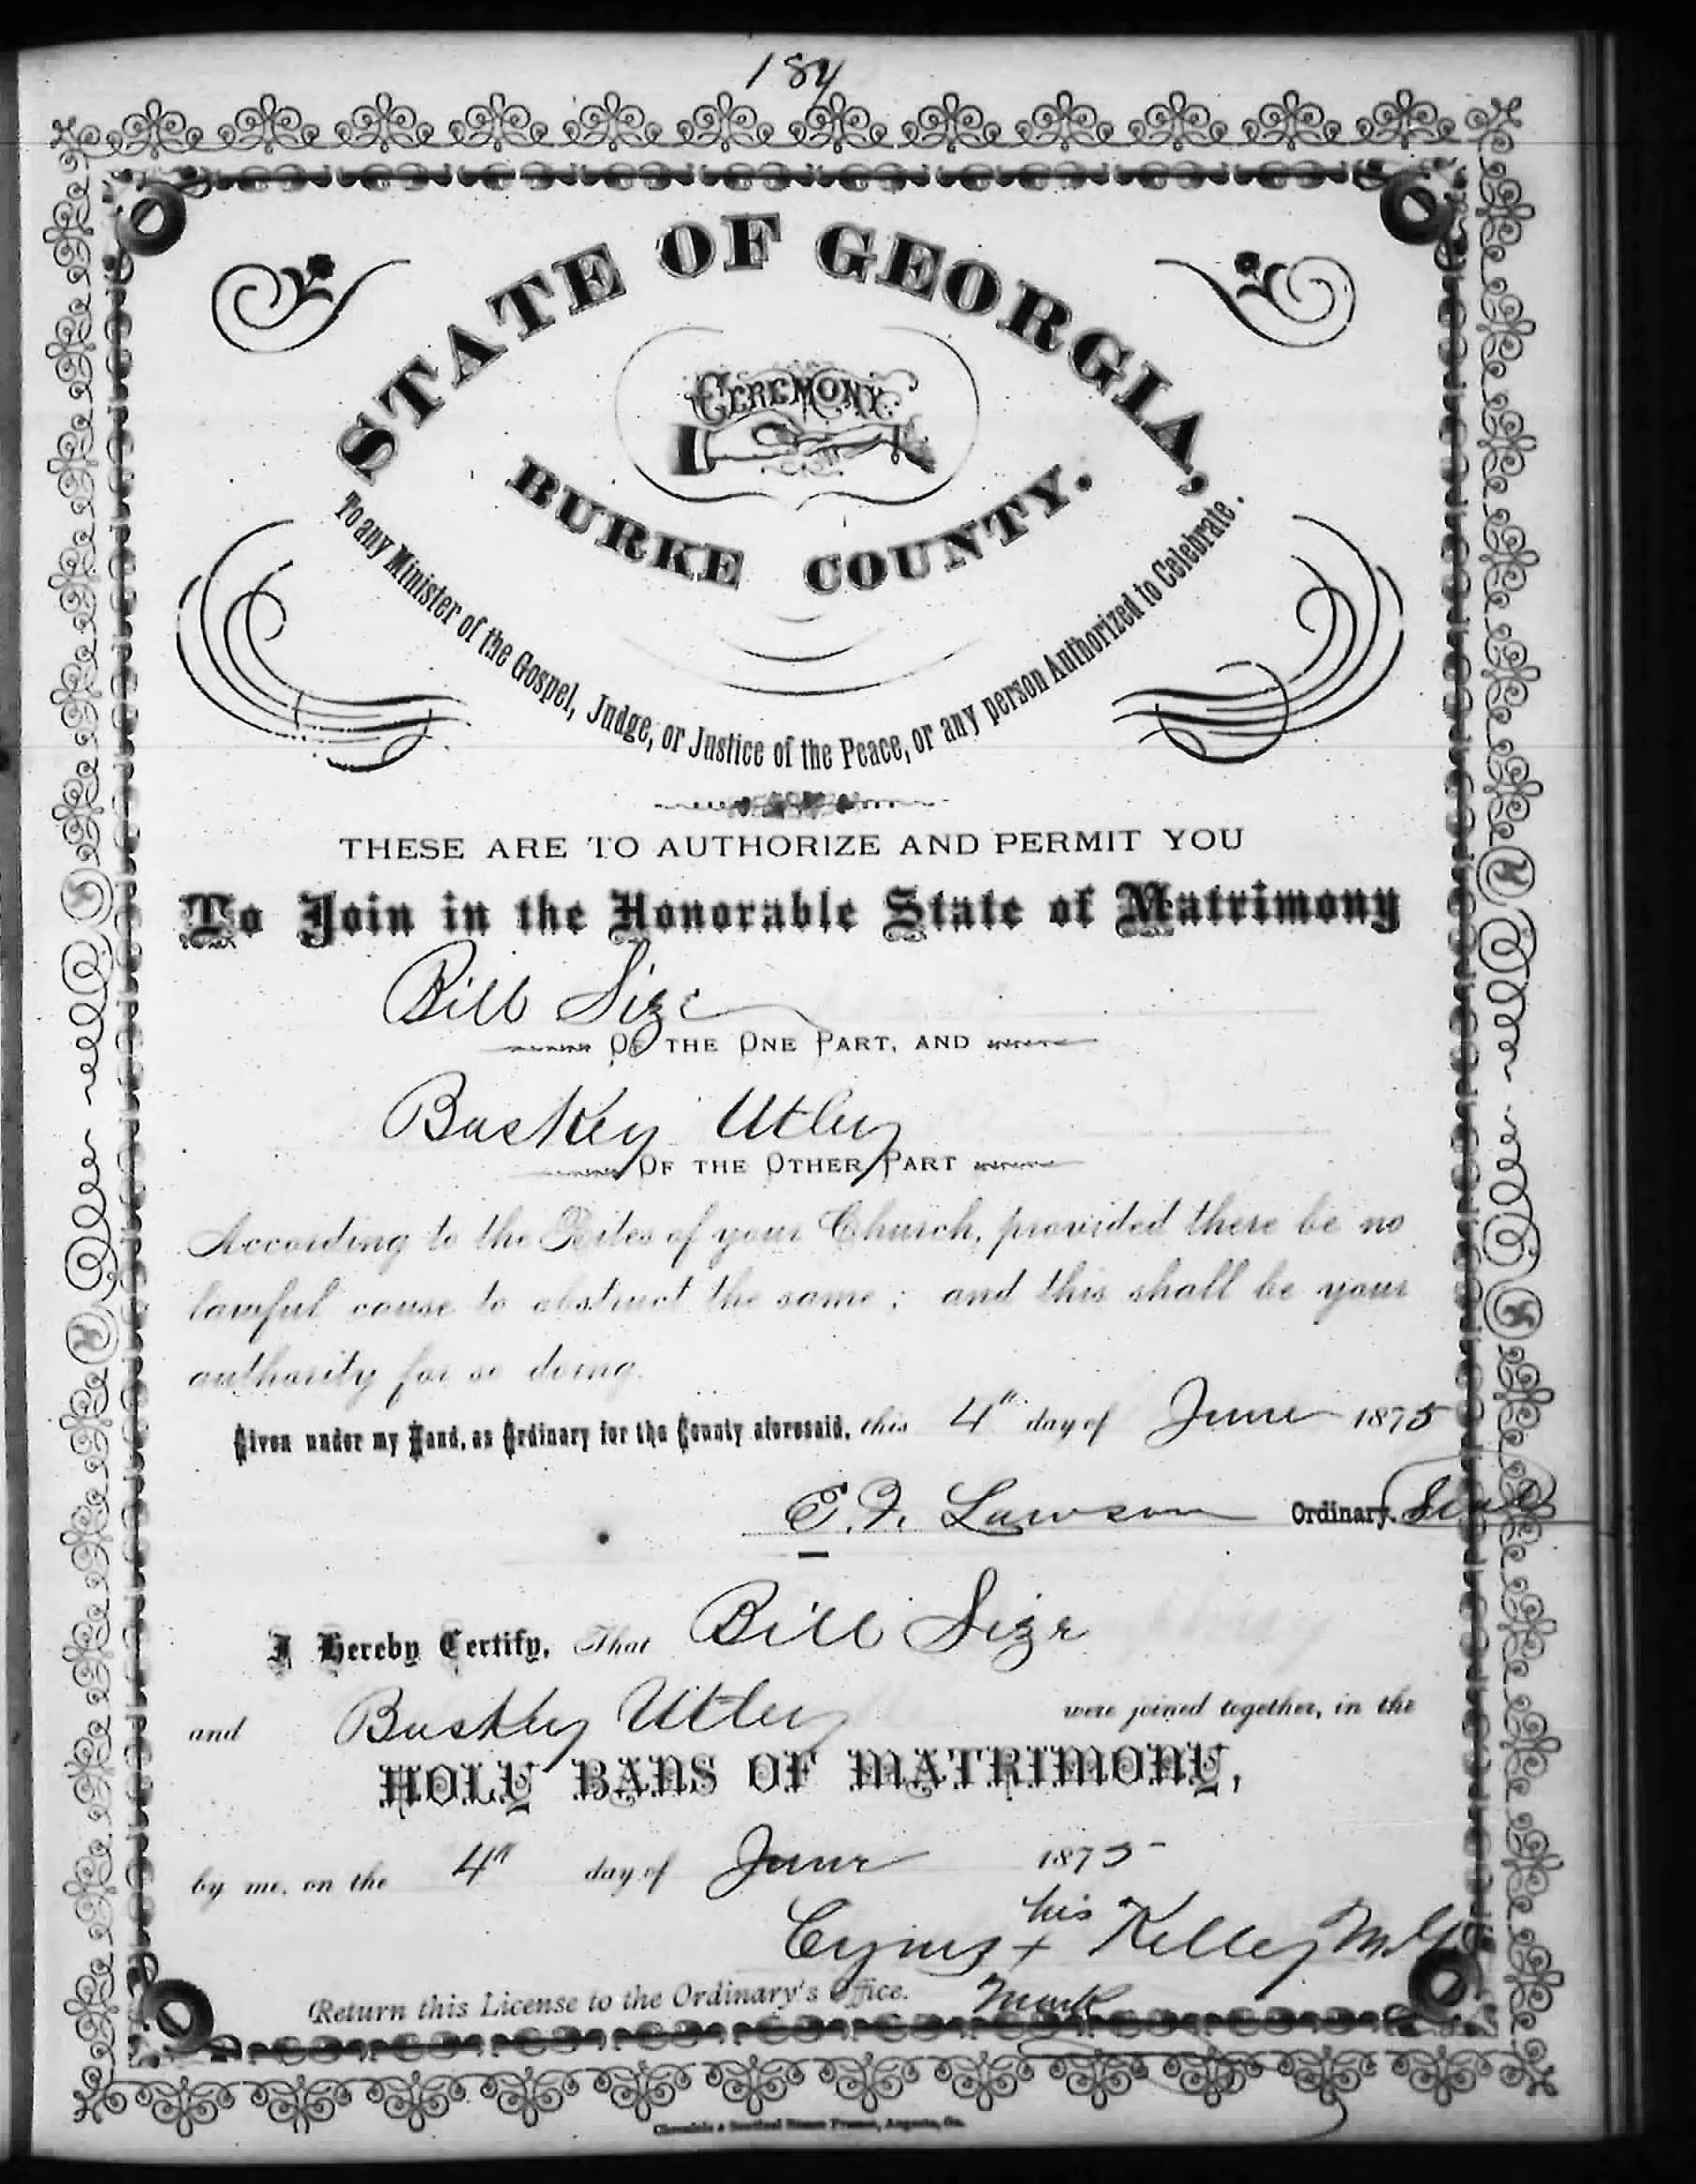 184
STATE OF GEORGIA,
CEREMONY
BURKE COUNTY.
To any Minister of the Gospel, Judge, or Justice of the Peace, or any person Authorized to Celebrate.
THESE ARE TO AUTHORIZE AND PERMIT YOU
To Join in the Honorable State of Matrimony
Bill Size
OF THE ONE PART, AND
Buskey Utley
OF THE OTHER PART
According to the Rites of your Church, provided there be no
lawful cause to obstruct the same; and this shall be your
authority for so doing.
Given under my Hand, as Ordinary for the County aforesaid, this 4th day of June 1875
E. F. Lawson Ordinary. Seal
I Hereby Certify, That Bill Size
and Buskey Utley were joined together, in the
HOLY BANS OF MATRIMONY,
by me, on the 4th day of June 1875
his
Cyrus + Kelley M.G.
mark
Return this License to the Ordinary's Office.
Chronicle & Sentinel Steam Presses, Augusta, Ga.